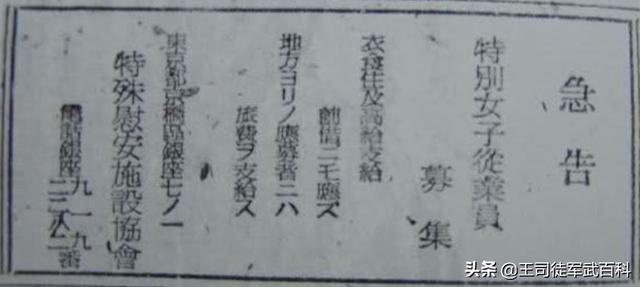 急告
特別女子從業員
募集
衣食住及高給支給
前借ニモ應ズ
地方ヨリノ應募者ニハ
旅費ヲ支給ス
東京都京橋區銀座七ノ一
特殊慰安施設協會
電話銀座
九一九番
二二八二
头条 @王司徒军武百科